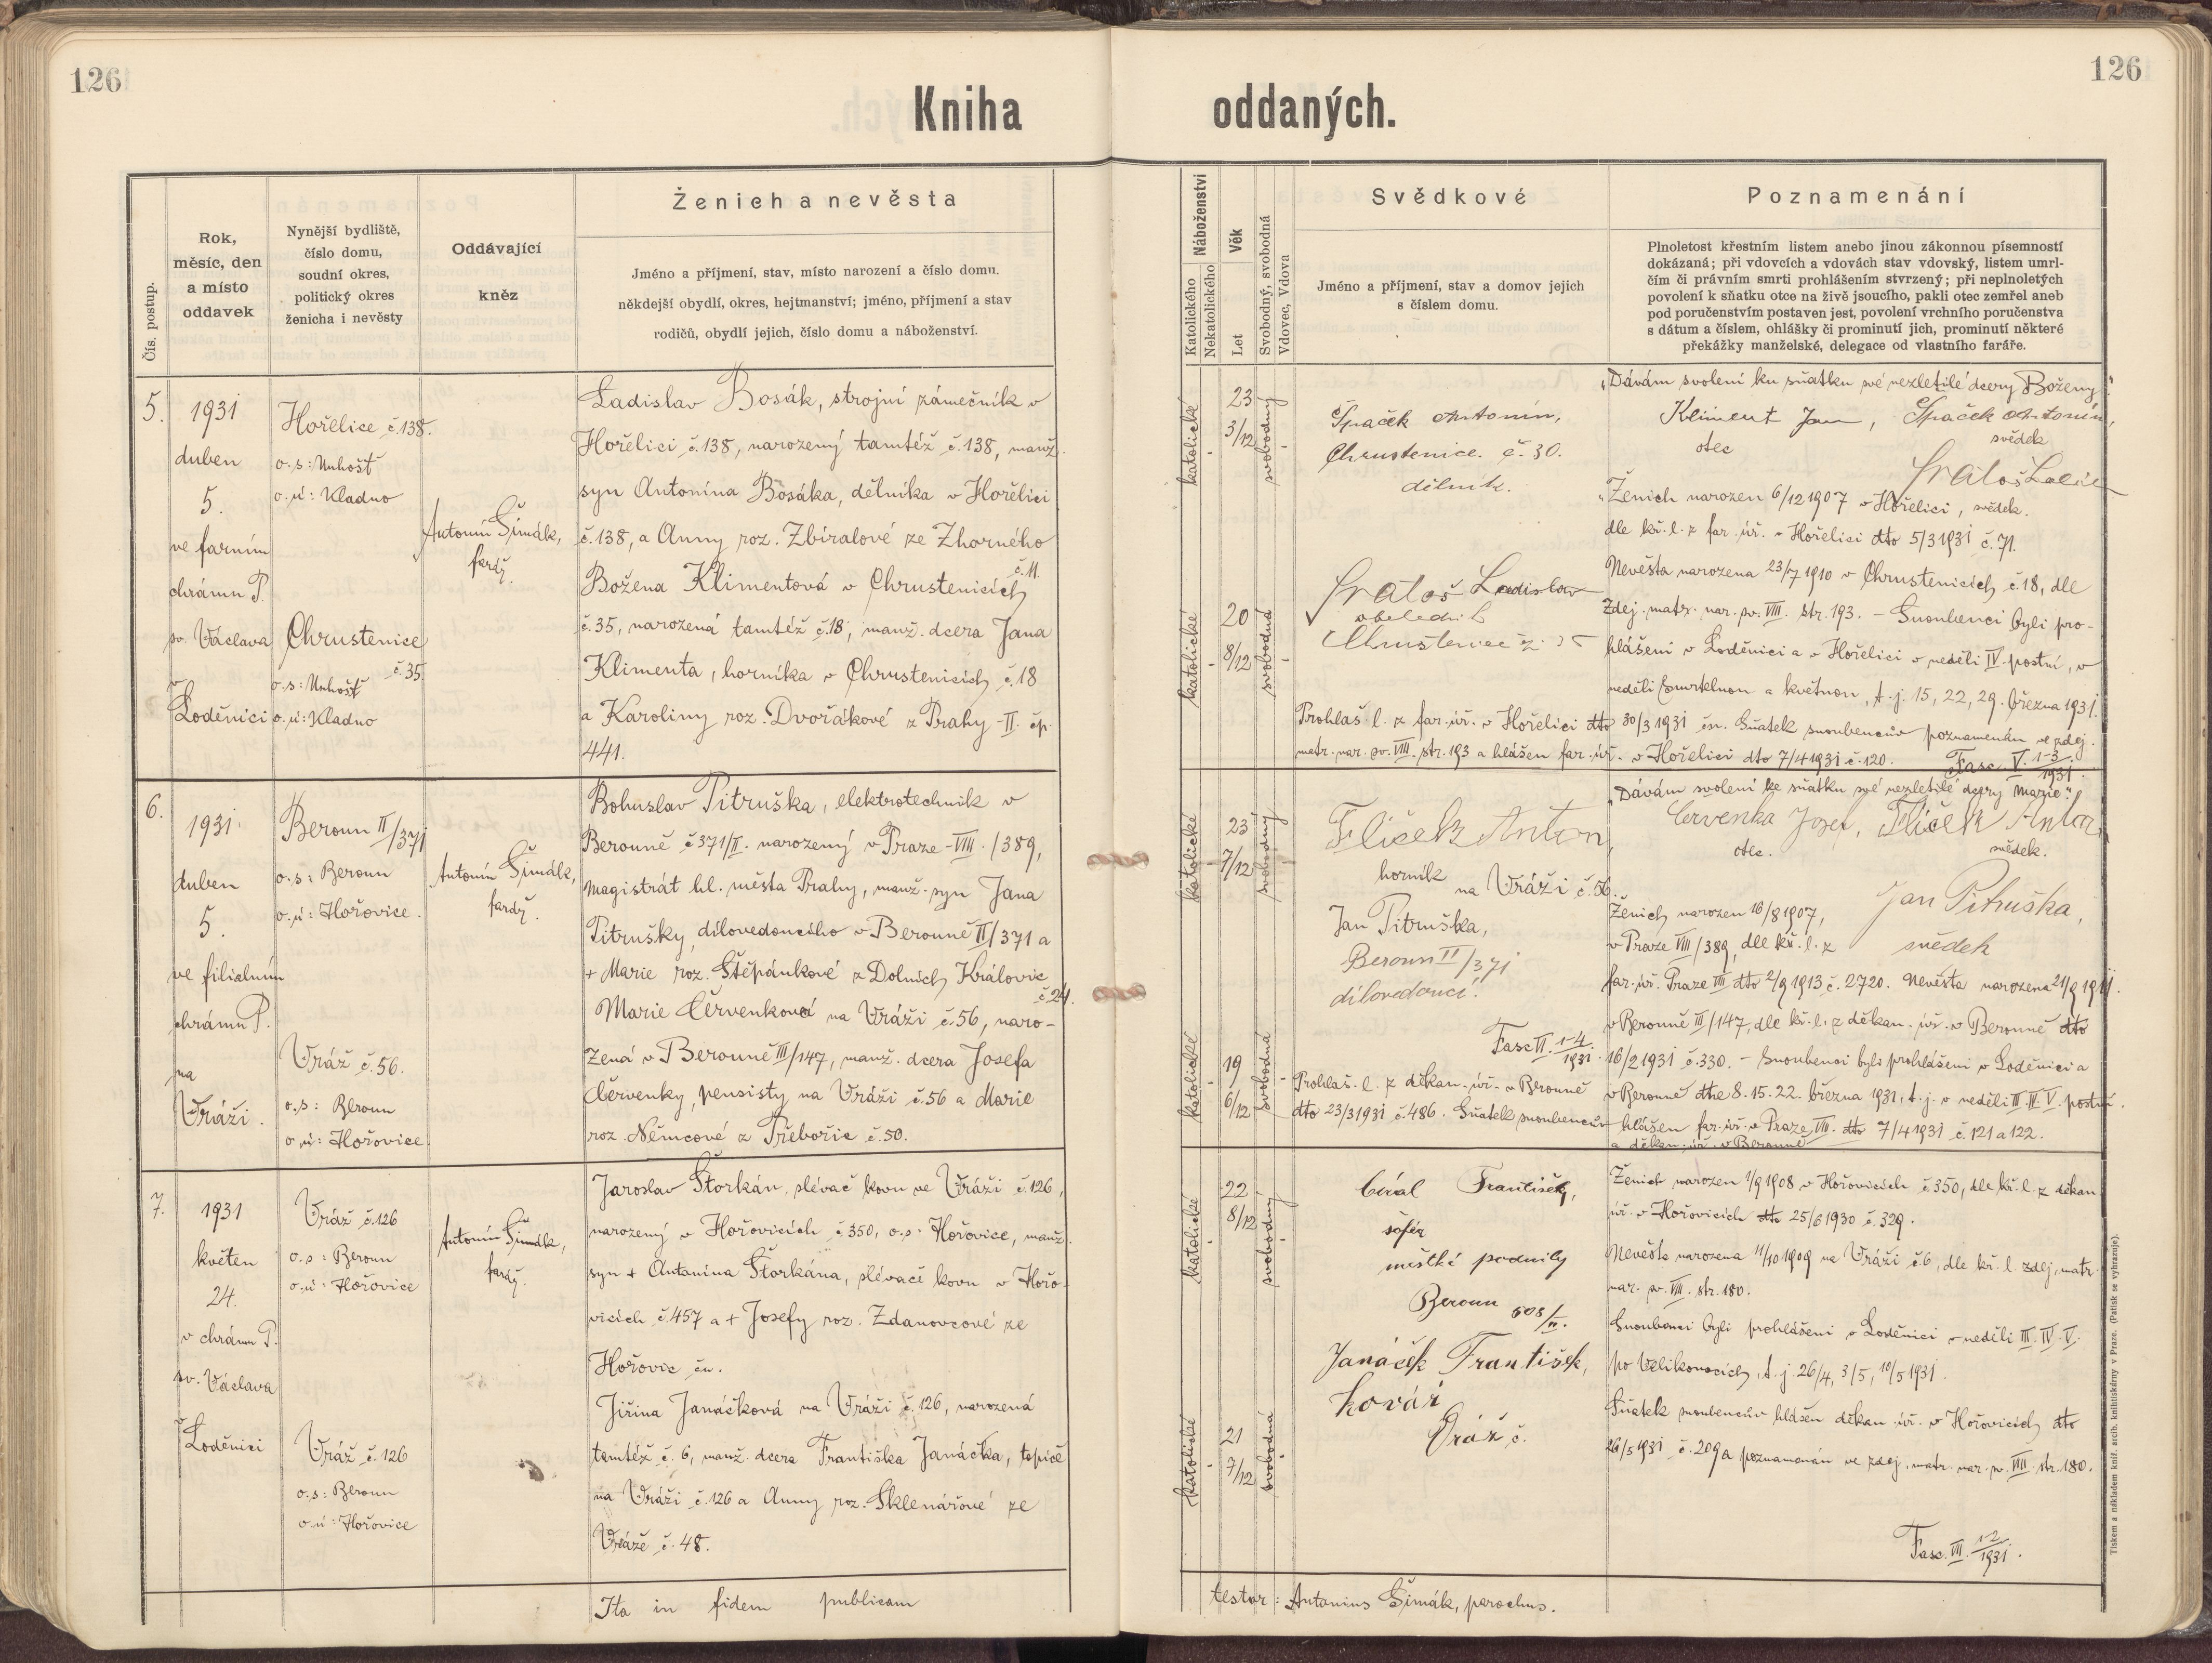 126
126
Kniha oddaných.
Čís. postup.
Rok,
měsíc, den
a místo
oddavek
Nynější bydliště,
číslo domu,
soudní okres,
politický okres
ženicha i nevěsty
Oddávající
kněz
Ženich a nevěsta
Jméno a příjmení, stav, místo narození a číslo domu.
někdejší obydlí, okres, hejtmanství; jméno, příjmení a stav
rodičů, obydlí jejich, číslo domu a náboženství.
Náboženství
Katolického
Nekatolického
Věk
Let
Svobodný, svobodná
Vdovec, Vdova
Svědkové
Jméno a příjmení, stav a domov jejich
s číslem domu.
Poznamenání
Plnoletost křestním listem anebo jinou zákonnou písemností
dokázaná; při vdovcích a vdovách stav vdovský, listem umrl-
čím či právním smrti prohlášením stvrzený; při neplnoletých
povolení k sňatku otce na živě jsoucího, pakli otec zemřel aneb
pod poručenstvím postaven jest, povolení vrchního poručenstva
s dátum a číslem, ohlášky či prominutí jich, prominutí některé
překážky manželské, delegace od vlastního faráře.
5.
1931
duben
5.
ve farním
chrámu P.
sv. Václava
v
Loděnici
Hořelice č.138.
o.s: Unhošť
o.ú: Kladno
Chrustenice
č.35.
o.s: Unhošť
o.ú: Kladno
Antonín Šimák,
farář.
Ladislav Bosák, strojní zámečník v
Hořelici č.138, narozený tamtéž č.138, manž.
syn Antonína Bosáka, dělníka v Hořelici
č.138, a Anny roz. Zbíralové ze Zhorného
č.11.
Božena Klimentová v Chrustenicích
č.35, narozená tamtéž č.18, manž. dcera Jana
Klimenta, horníka v Chrustenicích č.18
a Karoliny roz. Dvořákové z Prahy-II. čp.
441.
katolické
23
3/12
svobodný
katolické
20
8/12
svobodná
Špaček Antonín,
Chrustenice. č.30.
dělník.
Ladislav
Chrustenice
„Dávám svolení ku sňatku své nezletilé dcery Boženy."
Kliment Jan, Špaček Antonín,
otec svědek
Ženich narozen 6/12 1907 v Hořelici, svědek.
dle kř. l. z far. úř. v Hořelici dto 5/3 1931 č.71.
Nevěsta narozena 23/7 1910 v Chrustenicích č.18, dle
zdej. matr. nar. sv. VIII. str. 193. – Snoubenci byli pro-
hlášeni v Loděnici a v Hořelici v neděli IV. postní, v
neděli Smrtelnou a květnou, t.j. 15, 22, 29. března 1931.
Prohlaš. l. z far. úř. v Hořelici dto 30/3 1931 čn. Sňatek snoubencův poznamenán ve zdej.
matr. nar. sv. VIII. str. 193 a hlášen far. úř. v Hořelici dto 7/4 1931 č.120. Fasc. V. 1-3/1931.
6.
1931
duben
5.
ve filiálním
chrámu P.
na
Vráži.
Beroun II/371
o.s: Beroun
o.ú: Hořovice.
Vráž č.56.
o.s: Beroun
o.ú: Hořovice.
Antonín Šimák,
farář.
Bohuslav Pitruška, elektrotechnik v
Berouně č 371/II. narozený v Praze-VIII./389,
magistrát hl. města Prahy, manž. syn Jana
Pitrušky, dílovedoucího v Berouně II/371 a
+ Marie roz. Štěpánkové z Dolních Královic
č.24.
Marie Červenková na Vráži č.56, naro-
zená v Berouně III/147, manž. dcera Josefa
Červenky, pensisty na Vráži č.56 a Marie
roz. Němcové z Přebořic č.50.
katolické
23
7/12
svobodný
katolické
19
6/12
svobodná
Flíček Anton,
horník
na Vráži č.56.
Jan Pitruška,
Beroun II/371
dílovedoucí.
Fasc II. 1-4/1931.
„Dávám svolení ke sňatku své nezletilé dcery Marie."
Červenka Josef, Flíček Anton
otec. svědek.
Jan Pitruška,
svědek
Ženich narozen 16/8 1907,
v Praze VIII/389, dle kř. l. z
far. úř. Praze VIII dto 2/9 1913 č. 2720. Nevěsta narozena 21/9 1911.
v Berouně III/147, dle kř. l. z děkan. úř. v Berouně dto
16/2 1931 č.330. – Snoubenci byli prohlášeni v Loděnici a
v Berouně dne 8. 15. 22. března 1931, t.j. v neděli III. IV. V. postní.
Prohlaš. l. z děkan. úř. v Berouně
dto 23/3 1931 č.486. Sňatek snoubencův hlášen far. úř. v Praze VIII. dto 7/4 1931 č.121 a 122.
a děkan. úř. v Berouně
7.
1931
květen
24.
v chrámu P.
sv. Václava
v
Loděnici
Vráž č.126
o.s: Beroun
o.ú: Hořovice
Vráž č.126
o.s: Beroun
o.ú: Hořovice
Antonín Šimák,
farář.
Jaroslav Štorkán, slévač kovu ve Vráži č.126,
narozený v Hořovicích č.350, o.s: Hořovice, manž.
syn + Antonína Štorkána, slévače kovu v Hořo-
vicích č.457 a + Josefy roz. Zdanovcové ze
Hořovic čn.
Jiřina Janáčková na Vráži č.126, narozená
tamtéž č.6, manž. dcera Františka Janáčka, topiče
na Vráži č.126 a Anny roz. Sklenářové ze
Vráže č.48.
katolické
22
8/12
svobodný
katolické
21
7/12
svobodná
František,
šofér
městké podniky
Beroun 608/II.
Janáček František,
kovář
Vráž č.
Ženich narozen 1/9 1908 v Hořovicích č.350, dle kř. l. z děkan.
úř. v Hořovicích dto 25/6 1930 č.329.
Nevěsta narozena 11/10 1909 na Vráži č.6, dle kř. l. zdej. matr.
nar. sv. VIII. str. 180.
Snoubenci byli prohlášeni v Loděnici v neděli III. IV. V.
po Velikonocích, t.j. 26/4, 3/5, 10/5 1931.
Sňatek snoubencův hlášen děkan. úř. v Hořovicích dto
26/5 1931 č.209 a poznamenán ve zdej. matr. nar. sv. VIII. str. 180.
Fasc. VII. 1-2/1931.
Ita in fidem publicam testor: Antonius Šimák, parochus.
Tiskem a nákladem kníž. arcib. knihtiskárny v Praze. (Patisk se vyhrazuje).